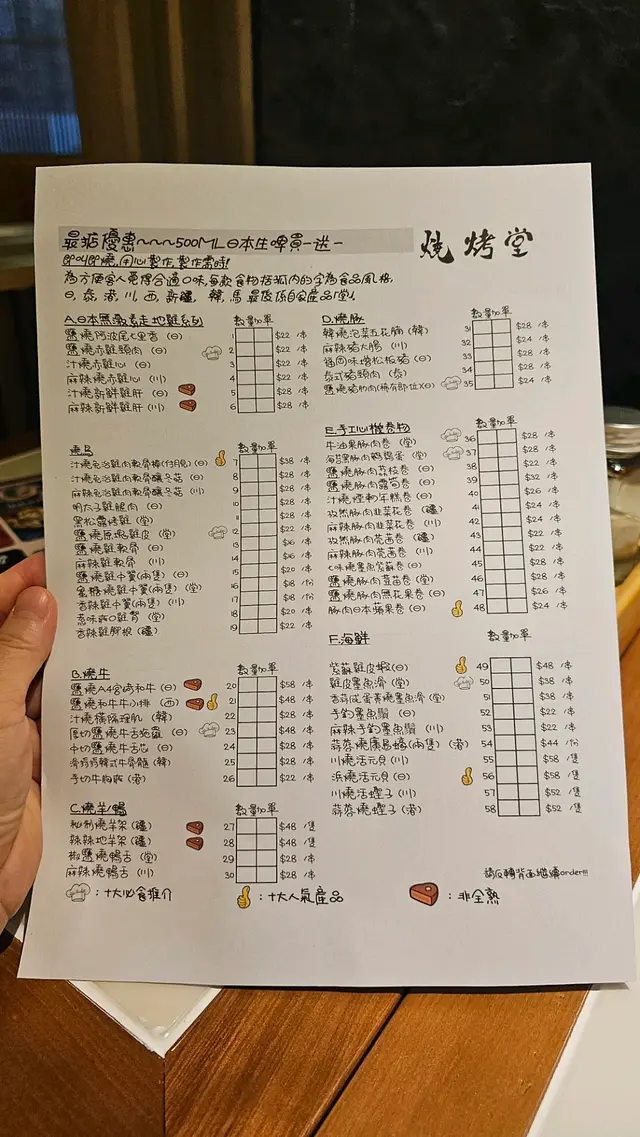 最抵優惠~~~500ML日本生啤買一送一
燒烤堂
即叫即燒,用心製作,製作需時!
為方便客人覓得合適口味,每款食物括弧內的字為食品風格,
日, 泰, 港, 川, 西, 新疆, 韓, 馬 最後係自家產品(堂)。
A.日本無激素走地雞系列 數量/加單
鹽燒阿波尾七里香 (日) 1 $22 /串
鹽燒赤雞頸肉 (日) 2 $22 /串
汁燒赤雞心 (日) 3 $22 /串
麻辣燒赤雞心 (川) 4 $22 /串
汁燒新鮮雞肝 (日) 5 $28 /串
麻辣新鮮雞肝 (川) 6 $28 /串
燒鳥 數量/加單
汁燒免治雞肉軟骨棒(付月見) (日) 7 $38 /串
汁燒免治雞肉軟骨釀冬菇 (日) 8 $28 /串
麻辣免治雞肉軟骨釀冬菇 (川) 9 $28 /串
明太子雞腿肉 (日) 10 $28 /串
黑松露燒雞 (堂) 11 $28 /串
鹽燒原塊雞皮 (堂) 12 $22 /串
鹽燒雞軟骨 (日) 13 /串
麻辣雞軟骨 (川) 14 /串
鹽燒雞中翼(兩隻) (日) 15 /份
蜜糖燒雞中翼(兩隻) (堂) 16 /份
香辣雞中翼(兩隻) (川) 17 /份
雞腎 (堂) 18 $20 /串
香辣雞腳根 (疆) 19 $22 /串
B.燒牛 數量/加單
鹽燒A4宮崎和牛 (日) 20 $58 /串
鹽燒和牛牛小排 (西) 21 $48 /串
汁燒橫膈理肌 (韓) 22 $38 /串
厚切鹽燒牛舌 (日) 23 $48 /串
中切鹽燒牛舌芯 (日) 24 $28 /串
韓式牛骨髓 (韓) 25 $28 /串
手切牛胸 (港) 26 $22 /串
C.燒羊/鴨 數量/加單
秘制燒羊架 (疆) 27 $48 /隻
辣辣地羊架 (疆) 28 $48 /隻
椒鹽燒鴨舌 (堂) 29 $28 /串
麻辣燒鴨舌 (川) 30 $28 /串
D.燒豚 數量/加單
韓燒泡菜五花腩 (韓) 31 $28 /串
麻辣豬大腸 (川) 32 $24 /串
福岡味增松板豬 (日) 33 $28 /串
泰式豬頸肉 (泰) 34 $28 /串
鹽燒豬肋肉(稀有部位)(日) 35 $24 /串
E.手工心機卷物 數量/加單
牛油果豚肉卷 (堂) 36 $28 /串
海苔黑豚肉鵪鶉蛋 (堂) 37 $28 /串
鹽燒豚肉荔枝卷 (日) 38 $22 /串
鹽燒豚肉露筍卷 (日) 39 $32 /串
汁燒煙軟年糕卷 (日) 40 $26 /串
孜然豚肉韭菜卷 (疆) 41 $24 /串
麻辣豚肉韭菜卷 (川) 42 $24 /串
孜然豚肉芫茜卷 (疆) 43 $24 /串
麻辣豚肉芫茜卷 (川) 44 $22 /串
七味鹽豚紫蘇卷 (日) 45 $28 /串
鹽燒豚肉豆苗卷 (堂) 46 $26 /串
鹽燒豚肉無花果卷 (日) 47 $28 /串
豚肉日本蘋果卷 (日) 48 $24 /串
F.海鮮 數量/加單
紫蘇雞皮蝦(日) 49 $48 /串
雞皮墨魚滑 (堂) 50 $38 /串
古法咸蛋黃燒墨魚滑 (堂) 51 $38 /串
手釣墨魚鬚 (日) 52 $22 /串
麻辣手釣墨魚鬚 (川) 53 $22 /串
蒜蓉燒廣島蠔(兩隻) (港) 54 $44 /份
川燒活元貝 (川) 55 $58 /隻
浜燒活元貝 (日) 56 $58 /隻
川燒活蟶子 (川) 57 $52 /隻
蒜蓉燒蟶子 (港) 58 $52 /隻
請反轉背面繼續order!!!
:十大必食推介
:十大人氣產品
:非全熟